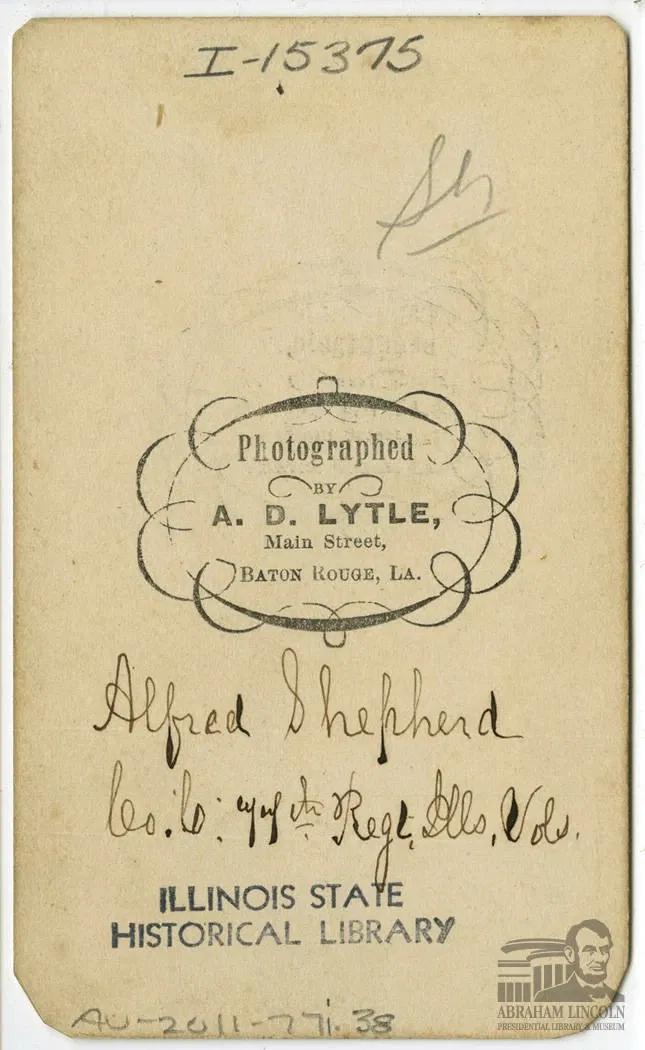 I-15375
Sh
Photographed
BY
A. D. LYTLE,
Main Street,
BATON ROUGE, LA.
Alfred Shepherd
Co. C. 77th Regt, Ills, Vols.
ILLINOIS STATE
HISTORICAL LIBRARY
AU-2011-771.38
ABRAHAM LINCOLN
PRESIDENTIAL LIBRARY & MUSEUM